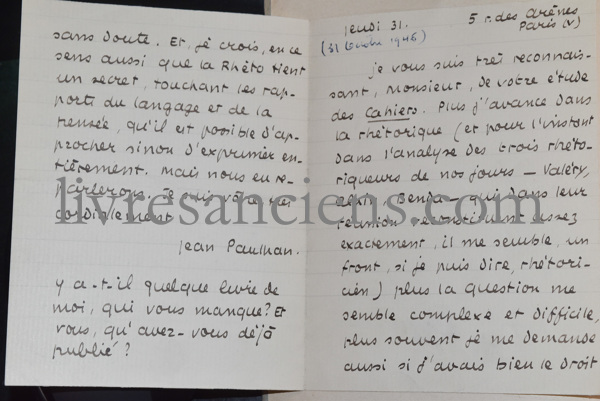 sans doute. Et, je crois, en ce
sens aussi que la Rhéto tient
un secret, touchant les rap-
ports du langage et de la
pensée, qu'il est possible d'ap-
procher sinon d'exprimer en-
tièrement. Mais nous en re-
parlerons. Je suis vôtre
cordialement
Jean Paulhan.
y a-t-il quelque livre de
moi, qui vous manque? Et
vous, qu'avez-vous déjà
publié?
jeudi 31.
5 r. des Arènes
Paris (V)
(31 Octobre 1946)
je vous suis très reconnais-
sant, Monsieur, de votre étude
des Cahiers. Plus j'avance dans
la rhétorique (et pour l'instant
dans l'analyse des trois rhéto-
riqueurs de nos jours — Valéry,
Alain, Benda — qui dans leur
réunion reconstituent assez
exactement, il me semble, un
front, si je puis dire, rhétori-
cien) plus la question me
semble complexe et difficile,
plus souvent je me demande
aussi si j'avais bien le droit
livresanciens.com